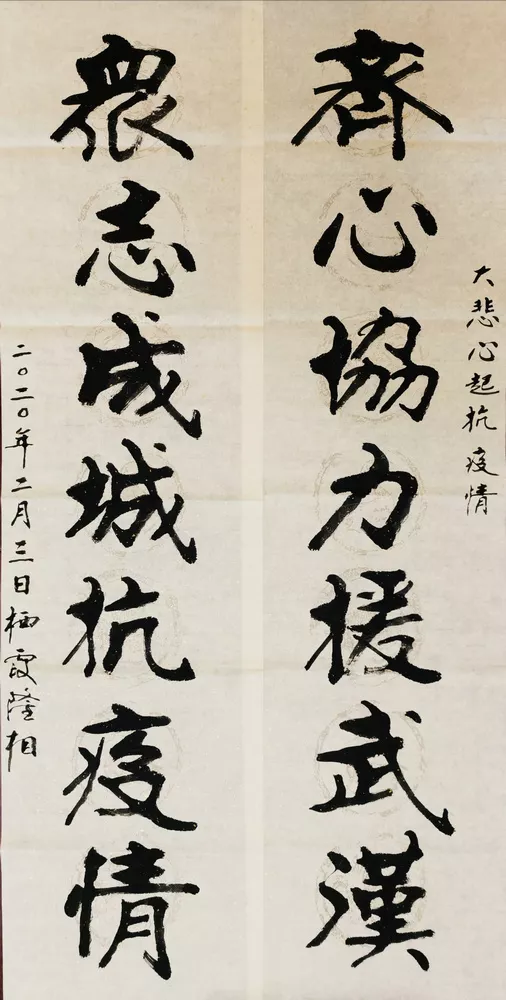 大悲心起抗疫情
齊心協力援武漢
衆志成城抗疫情
二〇二〇年二月三日栖霞隆相